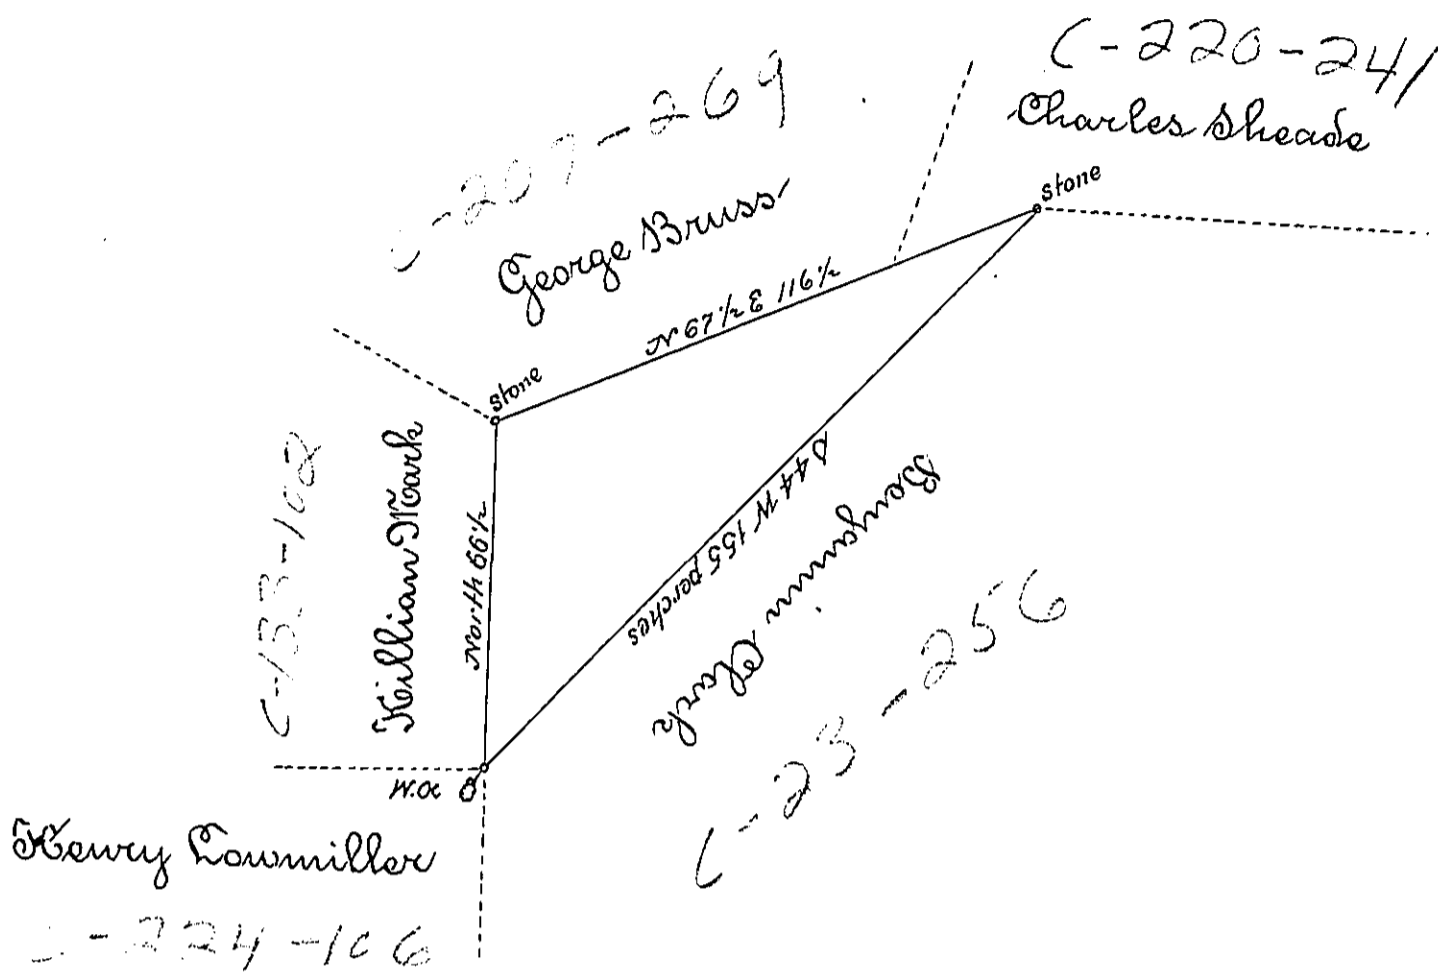 C-220-241
Charles Sheade
stone
-269
George Bruss
N 67 1/2 E 116 1/2
stone
Killian Mark
North 66 1/2
S 44 W 155 perches
Benjamin Clark
C-23-256
W. oa
Henry Lowmiller
-224-106